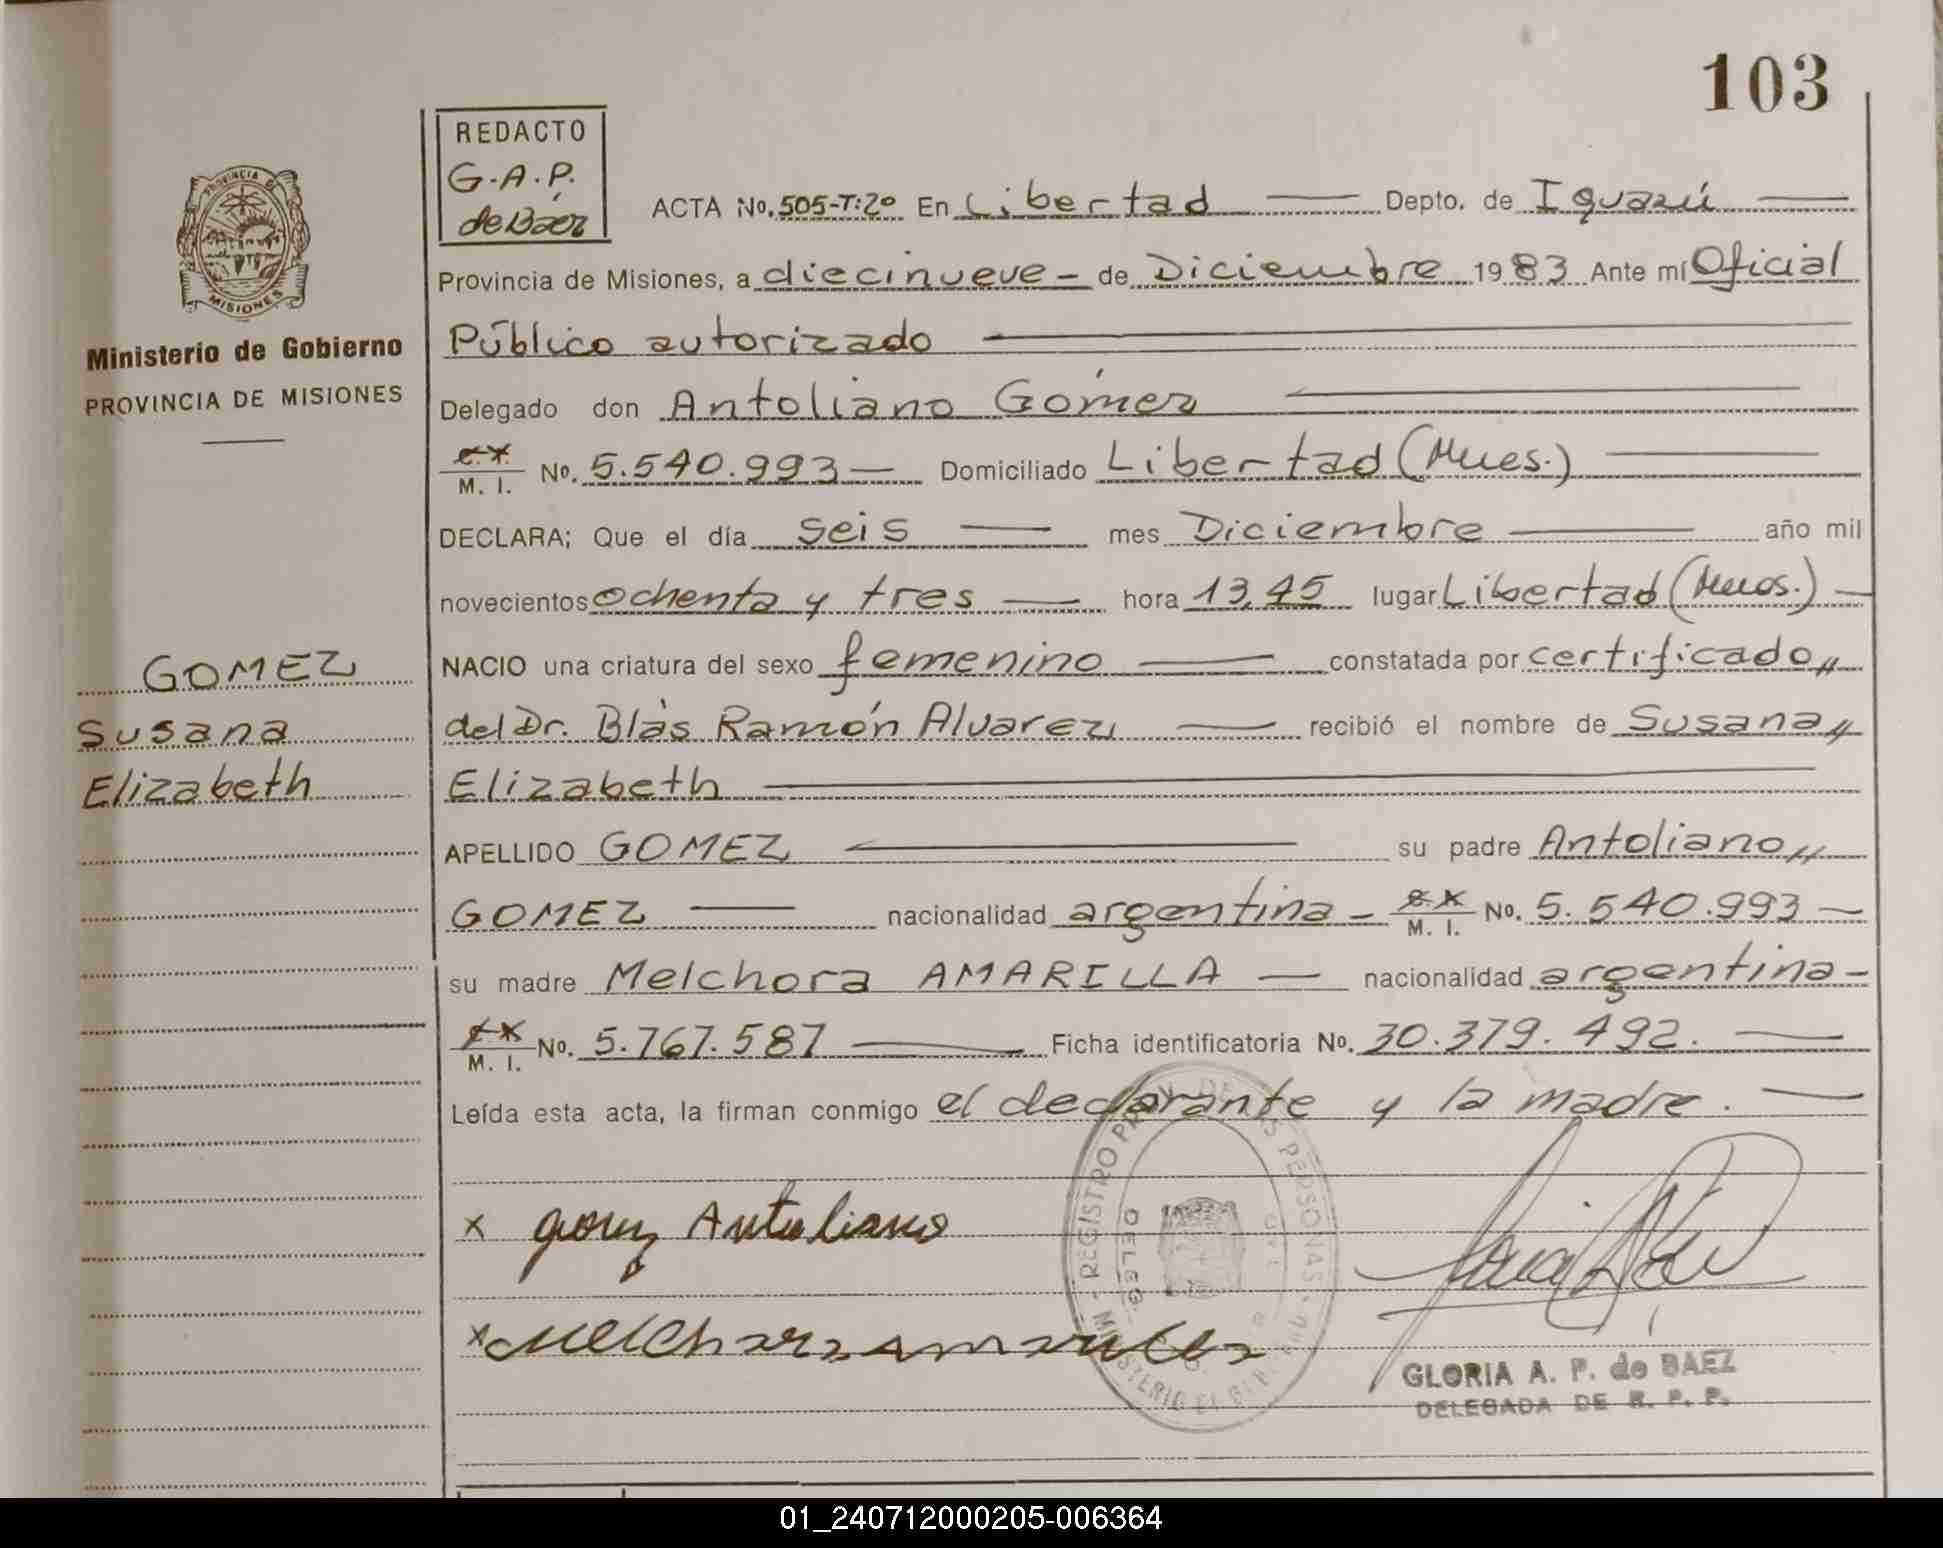 103
REDACTO
G.A.P.
de Báez
ACTA No. 505-T:2º En Libertad Depto. de Iguazú
Provincia de Misiones, a diecinueve - de Diciembre 1983 Ante mí Oficial
Público autorizado
Delegado don Antoliano Gómez
M. I. No. 5.540.993 — Domiciliado Libertad (Mnes.)
DECLARA; Que el día seis — mes Diciembre — año mil
novecientos ochenta y tres — hora 13,45 lugar Libertad (Mnes.) —
NACIO una criatura del sexo femenino — constatada por certificado,,
del Dr. Blás Ramón Alvarez — recibió el nombre de Susana,,
Elizabeth
APELLIDO GOMEZ — su padre Antoliano,,
GOMEZ — nacionalidad argentina - M. I. No. 5.540.993 —
su madre Melchora AMARILLA — nacionalidad argentina -
M. I. No. 5.767.587 — Ficha identificatoria No. 30.379.492. —
Leída esta acta, la firman conmigo el declarante y la madre. —
x Gomez Antoliano
x Melchora amarilla
GLORIA A. P. de BAEZ
DELEGADA DE R. P. P.
PROVINCIA DE
MISIONES
Ministerio de Gobierno
PROVINCIA DE MISIONES
GOMEZ
Susana
Elizabeth
REGISTRO PROV. DE LAS PERSONAS
DELEG.
01_240712000205-006364